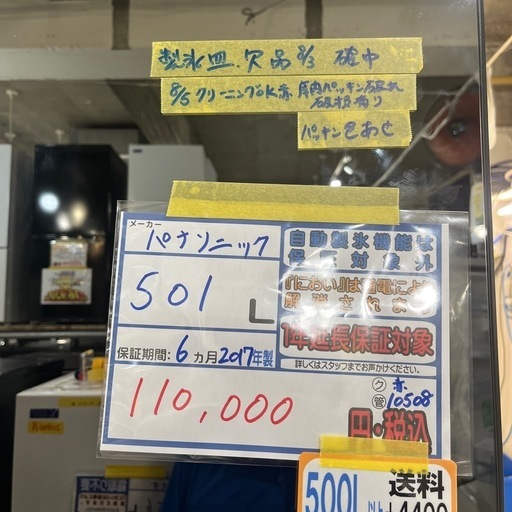 製氷皿 欠品 8/3 確中
8/5 クリーニングOK赤 庫内パッキン破れ
破損有り
パッキン色あせ
メーカー
パナソニック
自動製氷機能は
保証対象外
501 L
『におい』は通電により
解消されます
1年延長保証対象
詳しくはスタッフまでお声かけください。
保証期間: 6ヵ月 2017年製
ク 赤
管 10508
110,000
円・税込
500L以上
送料